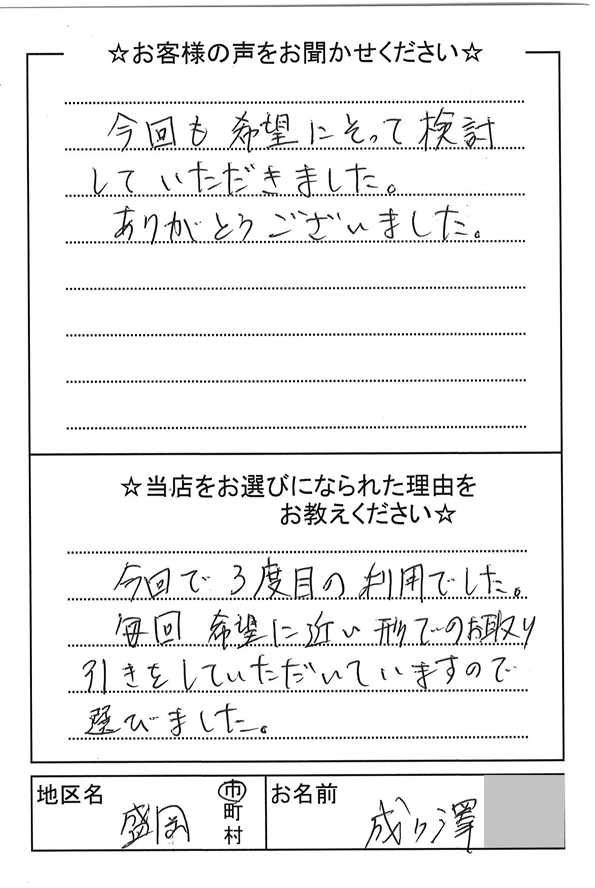 ☆お客様の声をお聞かせください☆
今回も希望にそって検討
していただきました。
ありがとうございました。
☆当店をお選びになられた理由を
お教えください☆
今回で3度目の利用でした。
毎回希望に近い形でのお取り
引きをしていただいていますので
選びました。
地区名
盛岡
市
町
村
お名前
成ヶ澤